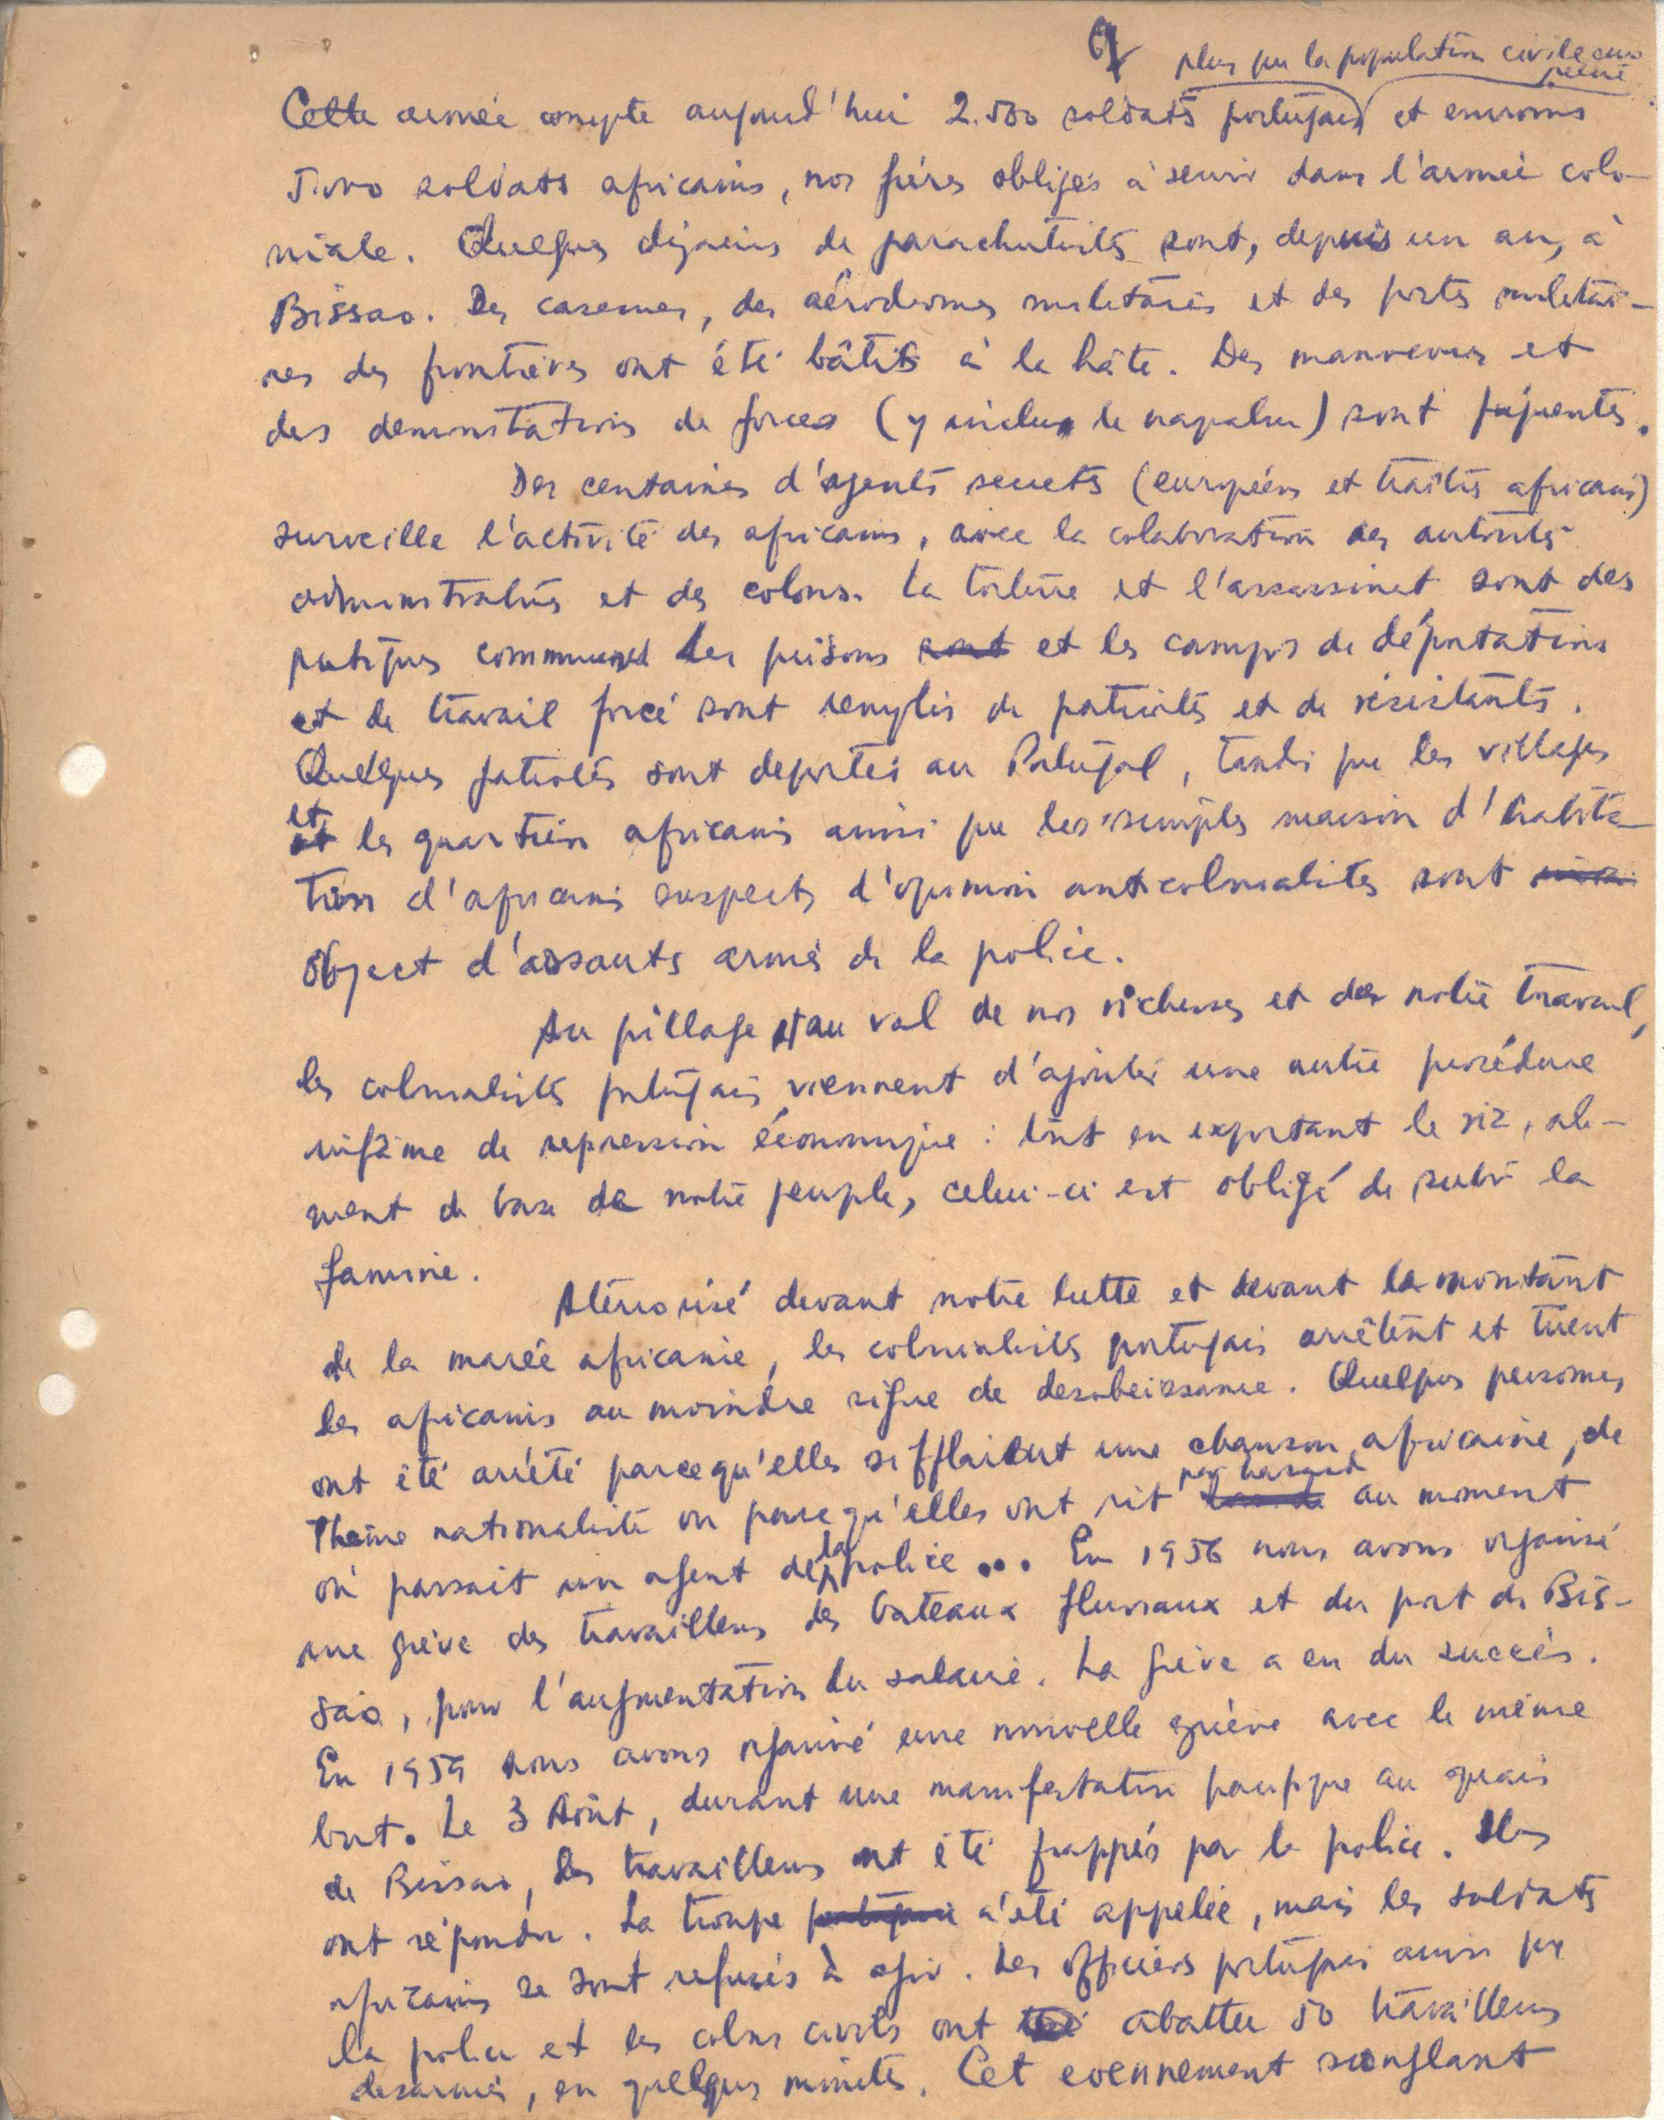 9
plus que la population civile euro
péene
Cette armée compte aujourd'hui 2.500 soldats portugais et environs
5.000 soldats africains, nos frères obligés à servir dans l'armée colo-
niale. Quelques dizaines de parachutistes sont, depuis un an, à
Bissao. Des casernes, des aérodromes militaires et des postes militai-
res des frontières ont été bâtis à la hâte. Des manoeuvres et
des demonstrations de forces (y inclus le napalm) sont fréquentes.
Des centaines d'agents secrets (européens et traîtres africains)
surveille l'activité des africains, avec la colaboration des autorités
administratives et des colons. La torture et l'assassinat sont des
pratiques communes. Les prisons sont et les camps de déportations
et de travail forcé sont remplis de patriotes et de résistants.
Quelques patriotes sont deportés au Portugal, tandis que les villages
et
et les quartiers africains ainsi que les simples maison d'habita-
tion d'africains suspects d'opinion anticolonialistes sont
object d'assauts armés de la police.
Au pillage et au vol de nos richesses et de notre travail,
les colonialistes portugais viennent d'ajouter une autre procédure
infâme de repression économique : tout en exportant le riz, ali-
ment de base de notre peuple, celui-ci est obligé de subir la
famine.
Atérrorisé devant notre lutte et devant le montant
de la marée africaine, les colonialistes portugais arrêtent et tuent
les africains au moindre signe de desobeissance. Quelques personnes
ont été arrêté parcequ'elles sifflaient une chanson africaine, de
thème nationaliste ou parcequ'elles ont rit par hasard au moment
où passait un agent de la police ... En 1956 nous avons organisé
une grève des travailleurs des bateaux fluviaux et du port de Bis-
sao, pour l'augmentation du salaire. La grève a eu du succès.
En 1959 nous avons organisé une nouvelle grève avec le même
but. Le 3 Août, durant une manifestation pacifique au quais
de Bissao, les travailleurs ont été frappés par la police. Ils
ont répondu. La troupe portugaise a été appelée, mais les soldats
africains se sont refusés à agir. Les officiers portugais ainsi que
la police et les colons civils ont tué abattu 50 travailleurs
desarmés, en quelques minutes. Cet evennement sanglant